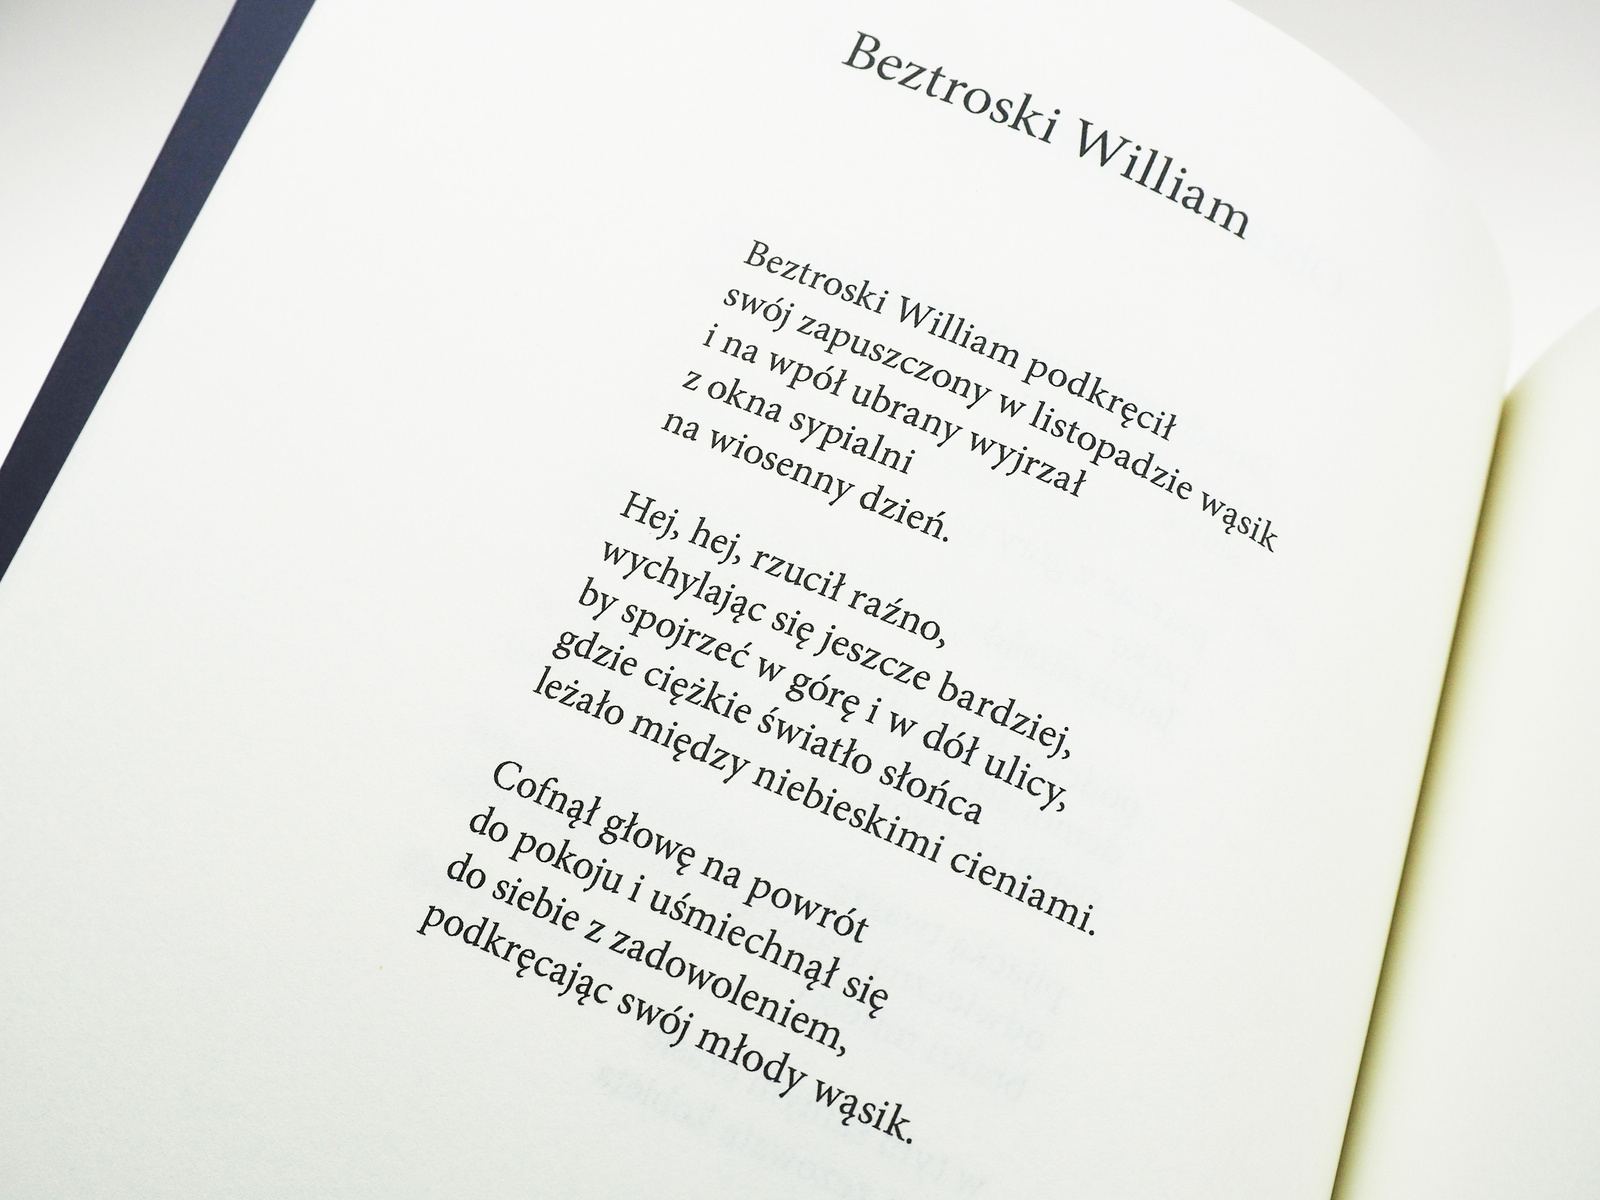 Beztroski William
Beztroski William podkręcił
swój zapuszczony w listopadzie wąsik
i na wpół ubrany wyjrzał
z okna sypialni
na wiosenny dzień.
Hej, hej, rzucił raźno,
wychylając się jeszcze bardziej,
by spojrzeć w górę i w dół ulicy,
gdzie ciężkie światło słońca
leżało między niebieskimi cieniami.
Cofnął głowę na powrót
do pokoju i uśmiechnął się
do siebie z zadowoleniem,
podkręcając swój młody wąsik.